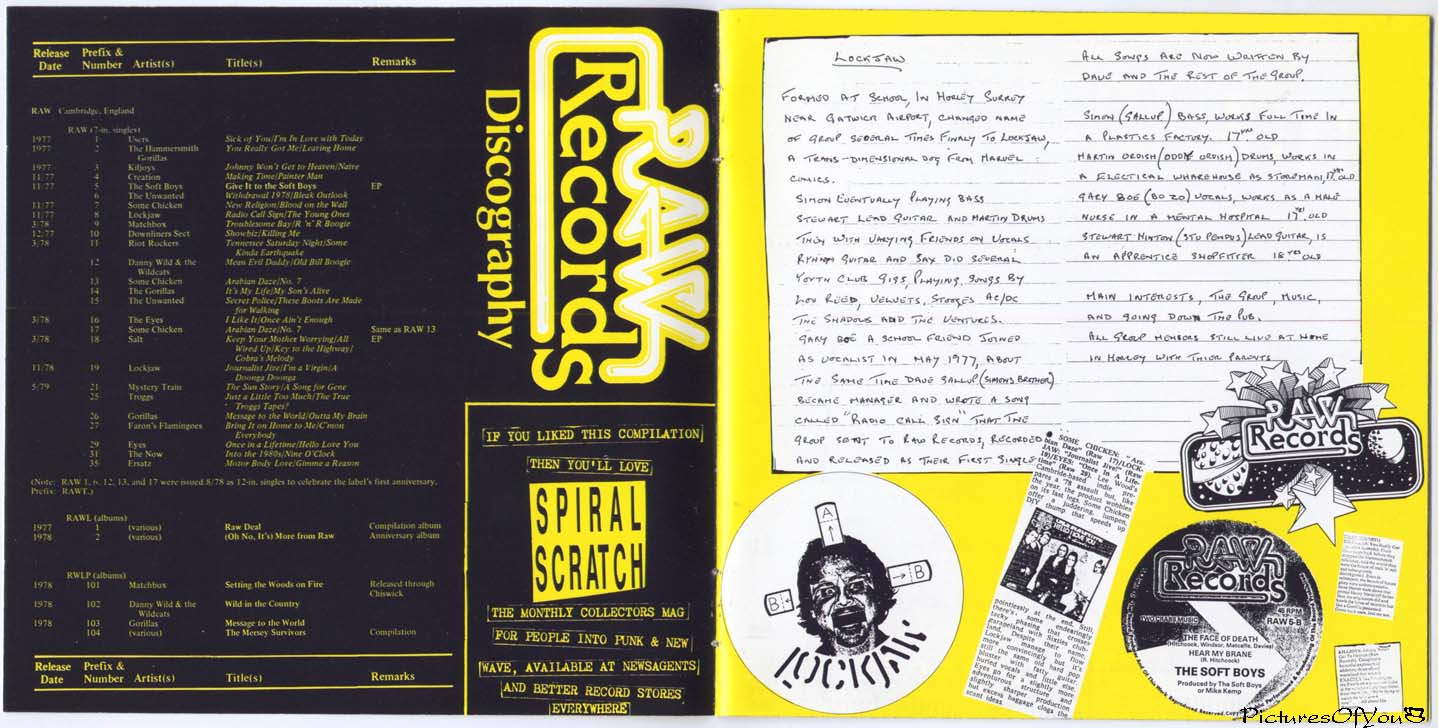 Release Prefix &
Date Number Artist(s) Title(s) Remarks
RAW Cambridge, England
RAW (7-in. singles)
1977 1 Users Sick of You/I'm In Love with Today
1977 2 The Hammersmith You Really Got Me/Leaving Home
Gorillas
1977 3 Killjoys Johnny Won't Get to Heaven/Naive
11/77 4 Creation Making Time/Painter Man
11/77 5 The Soft Boys Give It to the Soft Boys EP
6 The Unwanted Withdrawal 1978/Bleak Outlook
11/77 7 Some Chicken New Religion/Blood on the Wall
11/77 8 Lockjaw Radio Call Sign/The Young Ones
3/78 9 Matchbox Troublesome Bay/R 'n' R Boogie
12/77 10 Downliners Sect Showbiz/Killing Me
3/78 11 Riot Rockers Tennessee Saturday Night/Some
Kinda Earthquake
12 Danny Wild & the Mean Evil Daddy/Old Bill Boogie
Wildcats
13 Some Chicken Arabian Daze/No. 7
14 The Gorillas It's My Life/My Son's Alive
15 The Unwanted Secret Police/These Boots Are Made
for Walking
3/78 16 The Eyes I Like It/Once Ain't Enough
17 Some Chicken Arabian Daze/No. 7 Same as RAW 13
3/78 18 Salt Keep Your Mother Worrying/All EP
Wired Up/Key to the Highway/
Cobra's Melody
11/78 19 Lockjaw Journalist Jive/I'm a Virgin/A
Doonga Doonga
5/79 21 Mystery Train The Sun Story/A Song for Gene
25 Troggs Just a Little Too Much/The True
Troggs Tapes?
26 Gorillas Message to the World/Outta My Brain
27 Faron's Flamingoes Bring It on Home to Me/C'mon
Everybody
29 Eyes Once in a Lifetime/Hello Love You
31 The Now Into the 1980s/Nine O'Clock
35 Ersatz Motor Body Love/Gimme a Reason
(Note: RAW 1, 6, 12, 13, and 17 were issued 8/78 as 12-in. singles to celebrate the label's first anniversary.
Prefix: RAWT.)
RAWL (albums)
1977 1 (various) Raw Deal Compilation album
1978 2 (various) (Oh No, It's) More from Raw Anniversary album
RWLP (albums)
1978 101 Matchbox Setting the Woods on Fire Released through
Chiswick
1978 102 Danny Wild & the Wild in the Country
Wildcats
1978 103 Gorillas Message to the World
104 (various) The Mersey Survivors Compilation
Release Prefix &
Date Number Artist(s) Title(s) Remarks
RAW
Records
Discography
IF YOU LIKED THIS COMPILATION
THEN YOU'LL LOVE
SPIRAL
SCRATCH
THE MONTHLY COLLECTORS MAG
FOR PEOPLE INTO PUNK & NEW
WAVE, AVAILABLE AT NEWSAGENTS
AND BETTER RECORD STORES
EVERYWHERE
LOCKJAW
FORMED AT SCHOOL, IN HORLEY SURREY
NEAR GATWICK AIRPORT, CHANGED NAME
OF GROUP SEVERAL TIMES FINALY TO LOCKJAW,
A TRANS-DIMENSIONAL DOG FROM MARVEL
COMICS.
SIMON EVENTUALLY PLAYING BASS
STEWART LEAD GUITAR AND MARTIN DRUMS
THEN WITH VARYING FRIENDS ON VOCALS
RYHMN GUITAR AND SAX DID SEVERAL
YOUTH CLUB GIGS PLAYING SONGS BY
LOU REED, VELVETS, STOOGES AC/DC
THE SHADOWS AND THE VENTURES.
GARY BOE A SCHOOL FRIEND JOINED
AS VOCALIST IN MAY 1977, ABOUT
THE SAME TIME DAVE GALLUP (SIMONS BROTHER)
BECAME MANAGER AND WROTE A SONG
CALLED "RADIO CALL SIGN" THAT THE
GROUP SENT TO RAW RECORDS, RECORDED
AND RELEASED AS THEIR FIRST SINGLE
ALL SONGS ARE NOW WRITTEN BY
DAVE AND THE REST OF THE GROUP.
SIMON (GALLUP) BASS WORKS FULL TIME IN
A PLASTICS FACTORY. 17 YRS OLD
MARTIN ORDISH (ODDY ORDISH) DRUMS, WORKS IN
A ELECTICAL WHAREHOUSE AS STOREMAN, 17 YRS OLD
GARY BOE (BO ZO) VOCALS, WORKS AS A MALE
NURSE IN A MENTAL HOSPITAL 17 YRS OLD
STEWART HINTON (STU PENDUS) LEAD GUITAR, IS
AN APPRENTICE SHOPFITTER 18 YRS OLD
MAIN INTERESTS, THE GROUP, MUSIC,
AND GOING DOWN THE PUB.
ALL GROUP MEMBERS STILL LIVE AT HOME
IN HORLEY WITH THIER PARENTS
RAW
Records
A
B
B
LOCKJAW
SOME CHICKEN: "Ara-
bian Daze" (Raw 17)/LOCK-
JAW: "Journalist Jive" (Raw
19)/EYES: "Once In A Life-
time" (Raw 29) Lee Wood's
Cambridge-based indie pre-
pares a '78 assault but, like
the year, the product wobbles
on its last legs. Some Chicken
offer a juddering, lumpen,
DIY thump that speeds up
pointlessly at the end. Still,
there's some endearingly
tacky phasing that crosses
garageland with Sixties club-
land. Despite their name,
Lockjaw manage to flow
more convincingly but it's
still the same old hard pop
bluster with fatty guitar,
buried vocals and little else.
Eyes go for a slightly more
adventurous structure and
slightly sharper production
but excess baggage clogs the
scant ideas.
RAW
Records
45 RPM
RAW 5-B
TWO CRABS MUSIC
THE FACE OF DEATH
(Hitchcock, Windsor, Metcalfe, Davies)
HEAR MY BRANE
(R. Hitchcock)
THE SOFT BOYS
Produced by The Soft Boys
or Mike Kemp
PicturesOfYou